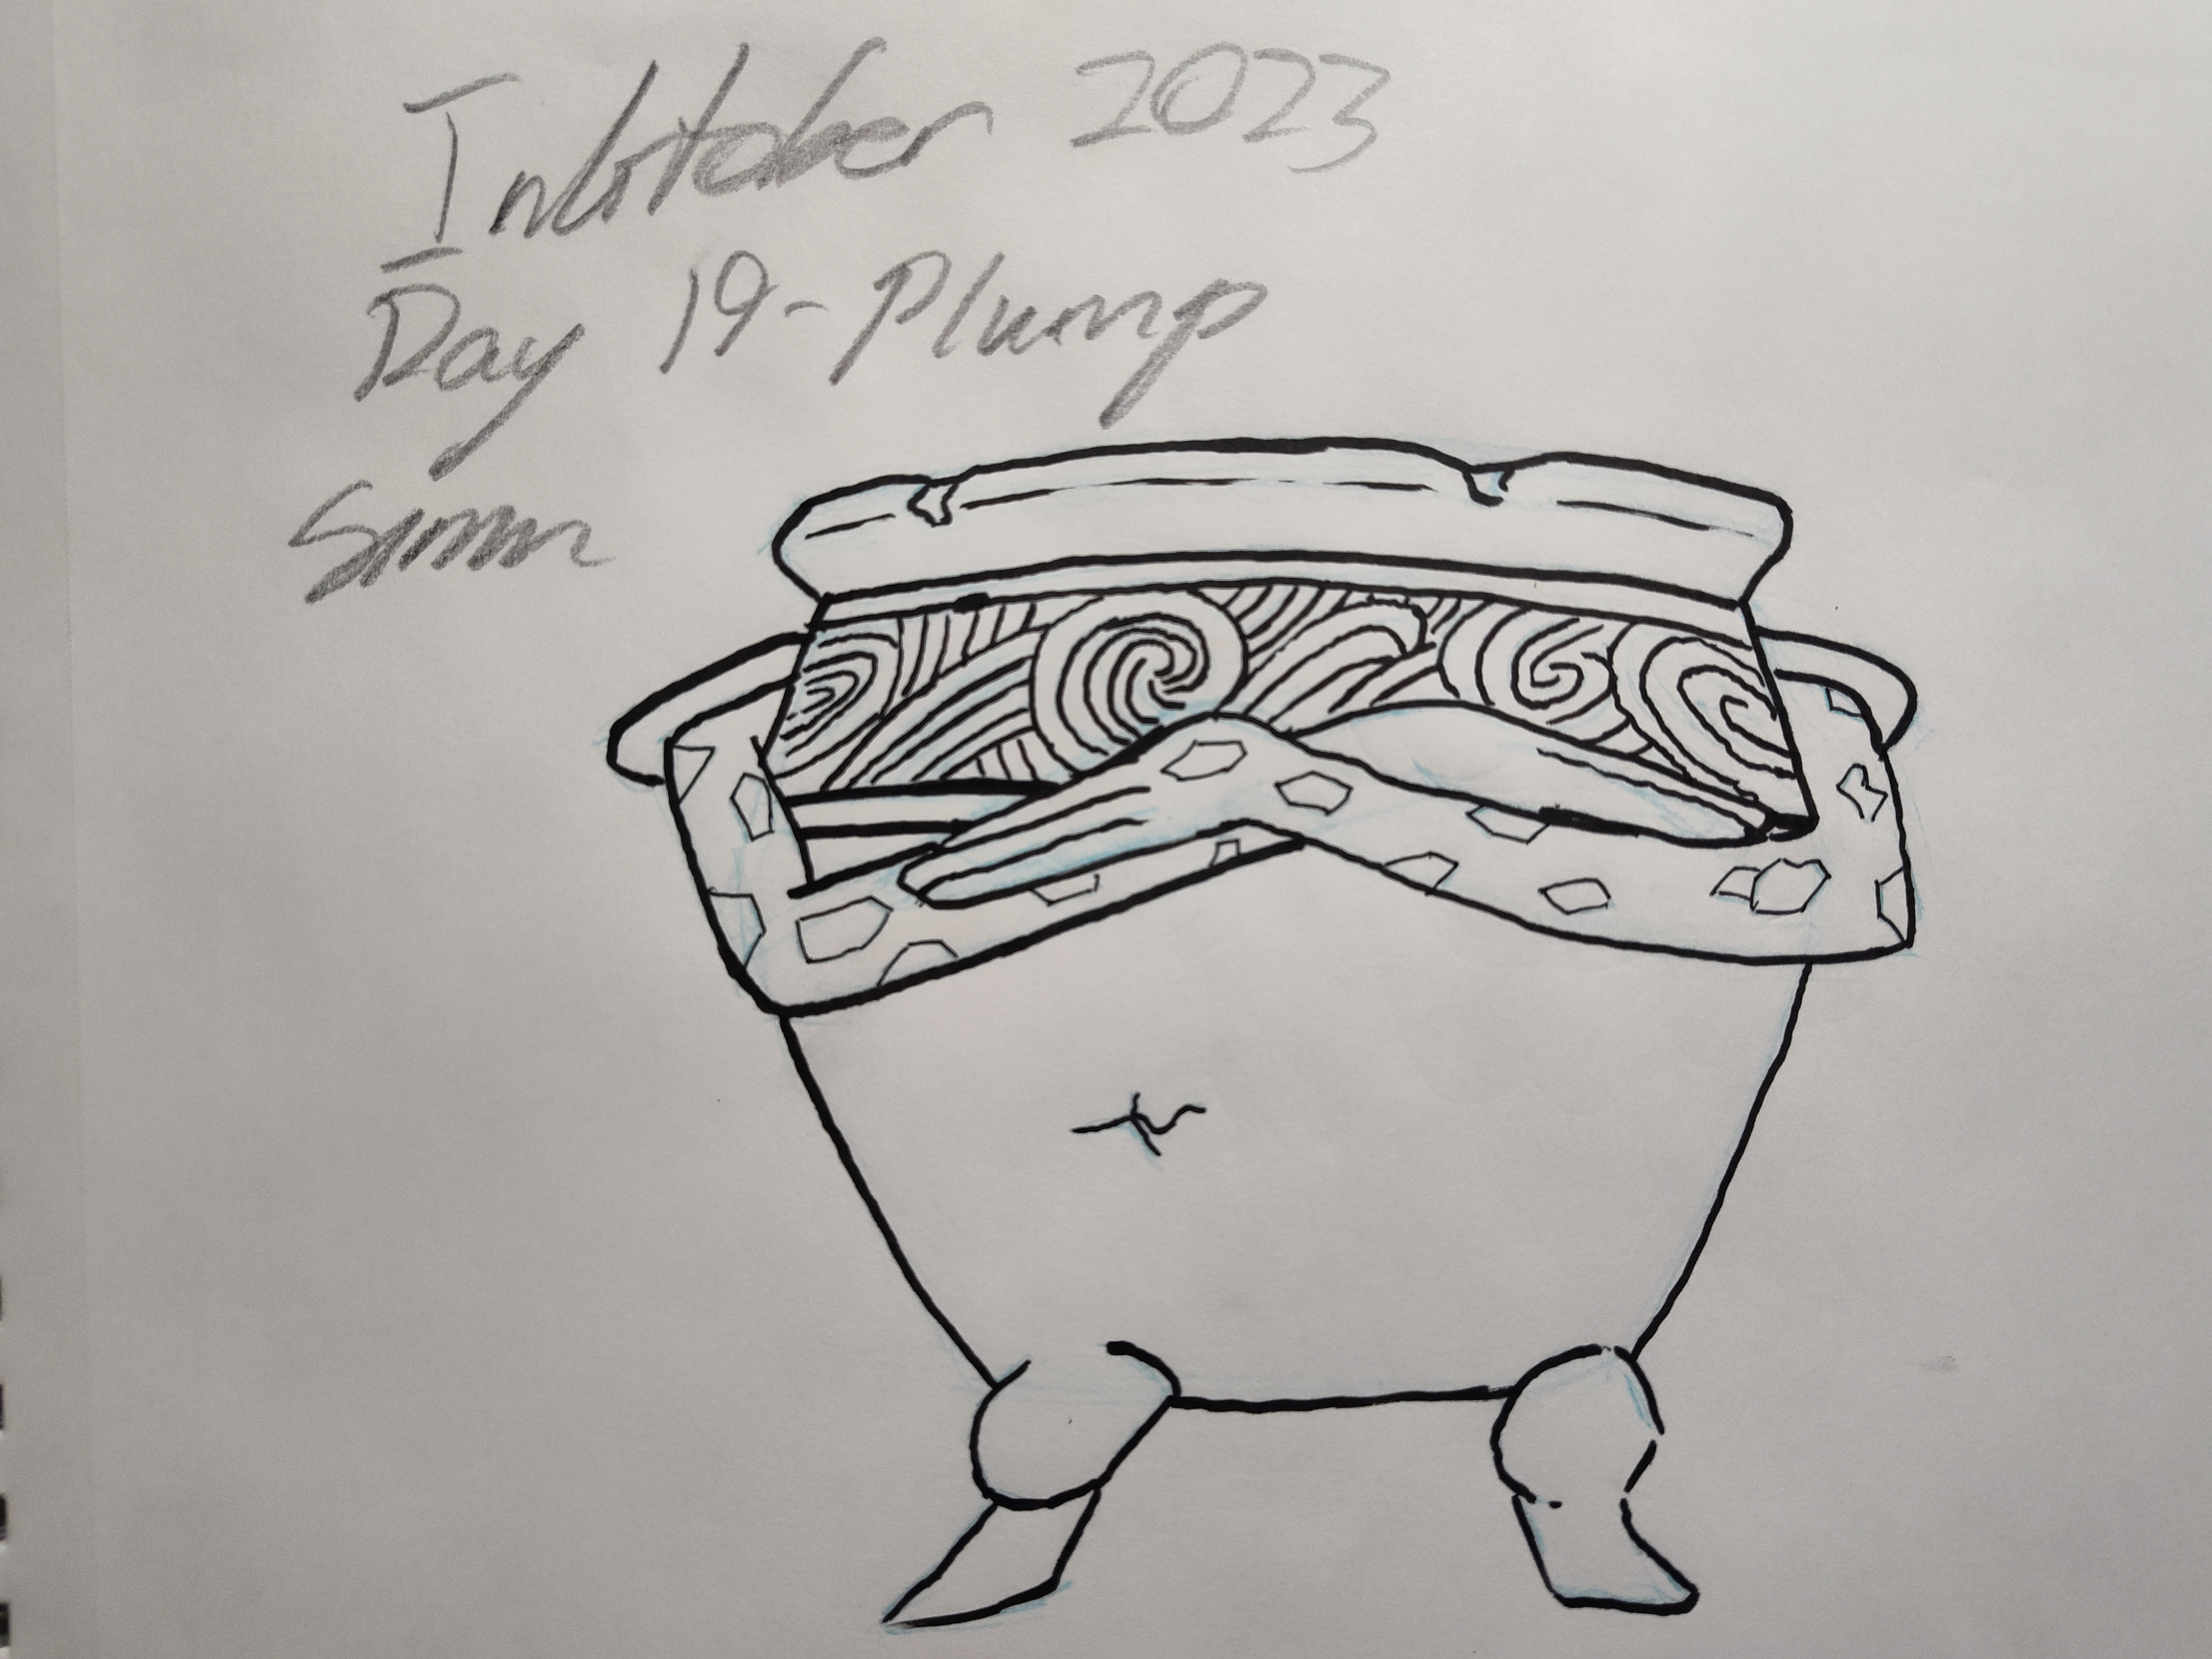 Inktober 2023
Day 19-Plump